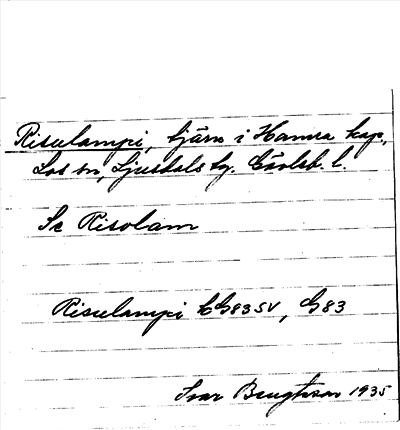 Risulampi, tjärn i Hamra kap.,
Los sn, Ljusdals tg. Gävleb. l.
Se Risolam
Risulampi bG83SV, G83
Ivar Bengtsson 1935